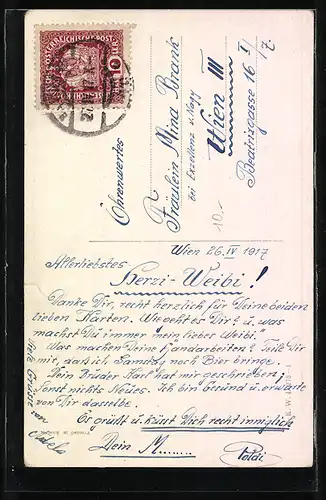 10
Ehrenwertes
Fräulein Mina Brank
bei Exzellenz v. Nagy
Wien III
Beatrixgasse 16 I/7.
10.-
Wien 26. IV 1917
Allerliebstes
Herzi-Weibi!
Danke Dir, recht herzlich für Deine beiden
lieben Karten. Wie geht es Dir? u. was
machst Du immer mein liebes Weibi?
Was machen Deine Handarbeiten? Teile Dir
mit, daß ich Samstag noch Bier bringe.
Dein Bruder Karl hat mir geschrieben,
sonst nichts Neues. Ich bin Gesund u. erwarte
von Dir dasselbe.
Es grüßt u. küsst Dich recht inniglich
Dein M........
Poldi